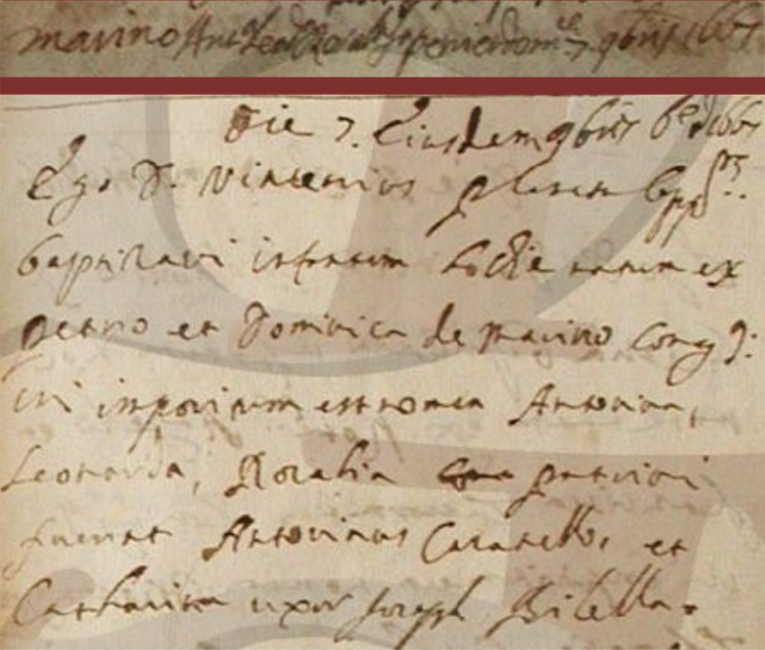 marino Ant.a Leon.da Ros.a 7 9bris 1667
Die 7. Eiusdem 9bris 6e Ind. 1667
Ego D. Vincentius
baptizavi infantem hodie natam ex
Petro et Dominica de Marino coniug.
cui impositum est nomen Antonina,
Leonarda, Rosalia patrini
fuerunt Antoninus Caratello, et
Catharina uxor Joseph Bilella.